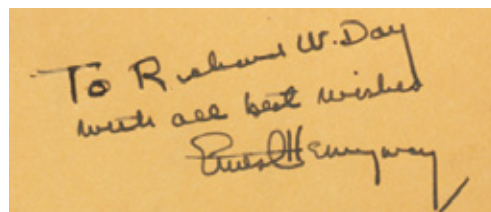 To Richard W. Day
with all best wishes
Ernest Hemingway